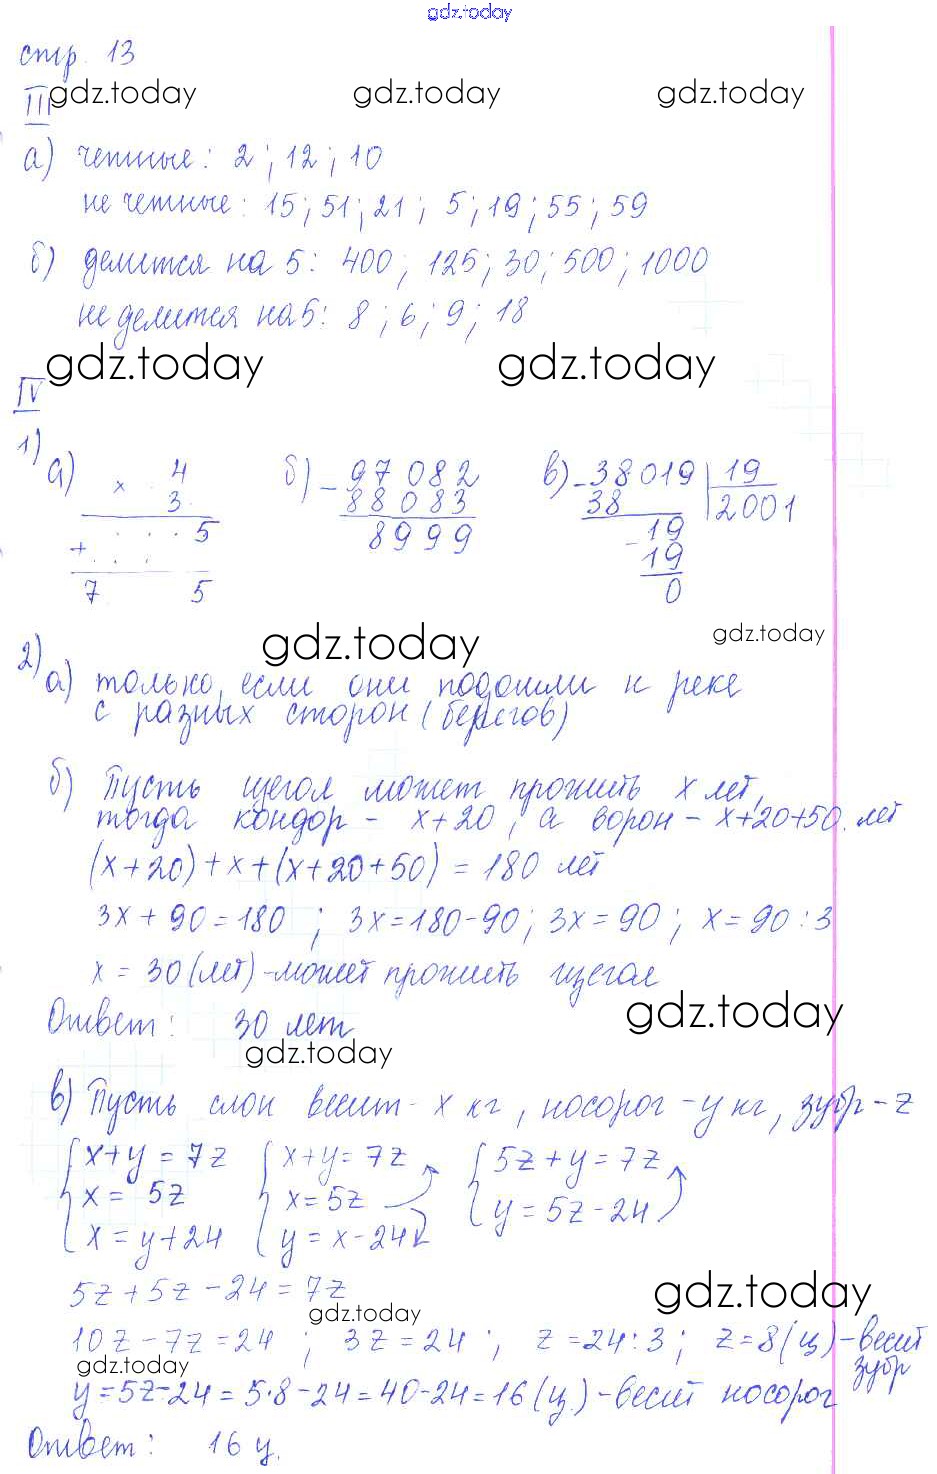 gdz.today
стр. 13
III
gdz.today gdz.today gdz.today
а) четные: 2; 12; 10
не четные: 15; 51; 21; 5; 19; 55; 59
б) делится на 5: 400; 125; 30; 500; 1000
не делится на 5: 8; 6; 9; 18
gdz.today gdz.today
IV
1)
а) × 4 б) - 97082 в) - 38019 | 19
3 88083 38 2001
. . . 5 8999 - 19
+ . . . 19
7 5 0
gdz.today gdz.today
2)
а) только, если они подошли к реке
с разных сторон (берегов)
б) Пусть щегол может прожить x лет,
тогда кондор - x+20, а ворон - x+20+50 лет
(x+20)+x+(x+20+50) = 180 лет
3x+90=180; 3x=180-90; 3x=90; x=90:3
x = 30 (лет) - может прожить щегол
gdz.today
Ответ: 30 лет
gdz.today
в) Пусть слон весит - x кг, носорог - y кг, зубр - z
{ x+y = 7z { x+y = 7z { 5z+y = 7z
x = 5z x = 5z y = 5z-24
x = y+24 y = x-24
5z+5z-24=7z
gdz.today gdz.today
10z-7z=24; 3z=24; z=24:3; z=8(ц) - весит
gdz.today зубр
y=5z-24=5·8-24=40-24=16(ц.) - весит носорог
Ответ: 16 ц.